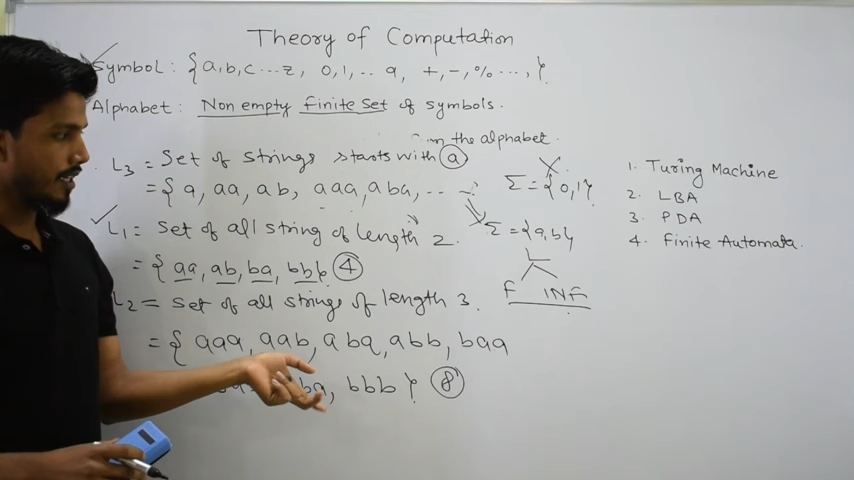 Theory of Computation
Symbol: {a,b,c...z, 0,1,..9, +,-,%...,}.
Alphabet: Non empty finite set of symbols.
the alphabet.
L3 = Set of strings starts with a
= {a, aa, ab, aaa, aba, ...}
Σ = {0,1}
L1 = Set of all string of length 2.
Σ = {a,b}
= {aa, ab, ba, bb} 4
F INF
L2 = Set of all strings of length 3.
= { aaa, aab, aba, abb, baa
ba, bbb }. 8
1. Turing Machine
2. LBA
3. PDA
4. Finite Automata.